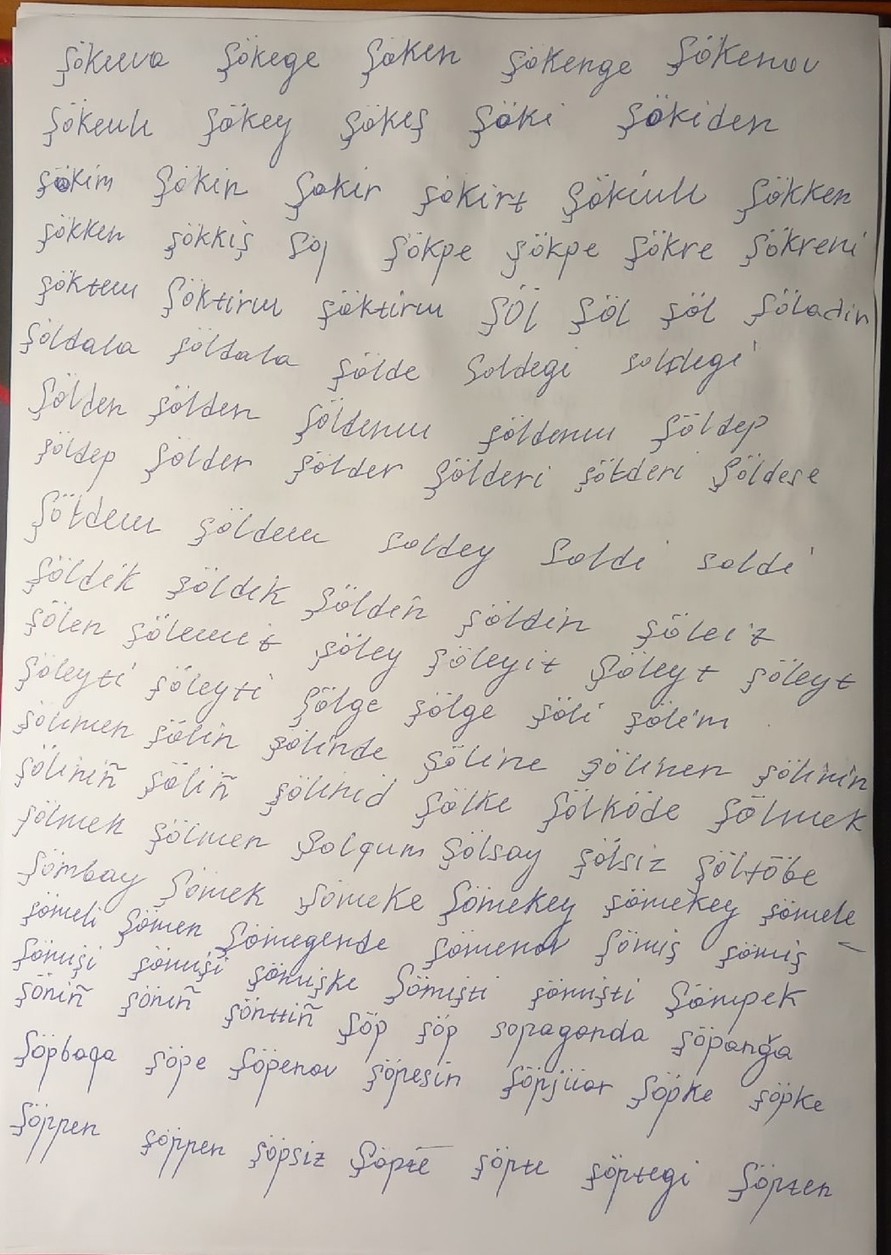 Şökeeva Şökege Şöken şökenge Şökenov
Şökeulı Şökey şökeş Şöki Şökiden
şökim Şökin Şakir şäkirt Şökiulı Şökken
şökken şökkiş Şöj Şökpe şökpe Şökre Şökreni
şökteu Şöktiru şöktiru ŞÖL Şöl şöl Şöladin
Şöldala şöldala şölde Soldegi soldegi
Şölden şölden Şöldenu şöldenu Şöldep
şöldep Şölder şölder Şölderi şölderi Şöldese
Şöldeu şöldeu soldey Soldi soldi
Şöldik şöldik Şöldiñ şöldin şöleiz
Şölen şölemiz Şöley şöleyit Şöleyt şöleyt
Şöleyti şöleyti Şölge şölge şöli şölim
şölimen şölin şölinde Şöline şölinen şölinin
Şöliniñ şöliñ şölinid Şölke Şölköde Şölmek
şölmek şölmen Şolqum Şölsay şölsiz Şöltöbe
Şömbay Şömek Şömeke Şömekey şömekey şömele
şömeli Şömen Şömegende Şömenov Şömiş şömiş
Şömişi şömişi şömişke Şömişti şömişti Şömpek
Şöniñ şöniñ şönttiñ Şöp şöp sopaganda şöpanğa
Şöpbaqa şöpe Şöpenov şöpesin şöpjüar Şöpke şöpke
Şöppen şöppen şöpsiz Şöpte şöpte şöptegi Şöpten